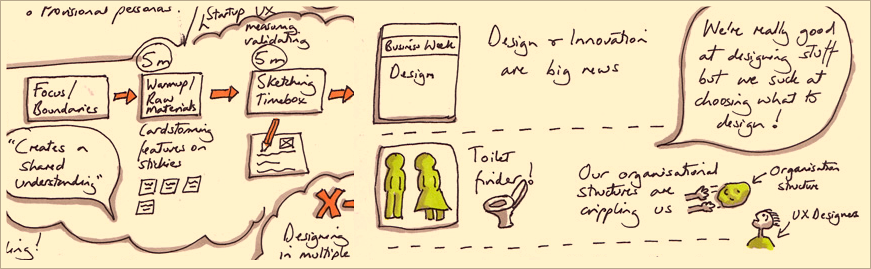 o Provisional personas.
Startup UX
measuring
validating
5m
5m
Focus/
Boundaries
Warmup/
Raw
materials
Sketching
Timebox
Cardstorming
features on
stickies
"Creates a
shared
understanding"
king!
Designing
in multiple
Business Week
Design
Design & Innovation
are big news
We're really good
at designing stuff
but we suck at
choosing what to
design!
Toilet
finder!
Our organisational
structures are
crippling us
Organisation
structure
UX Designers